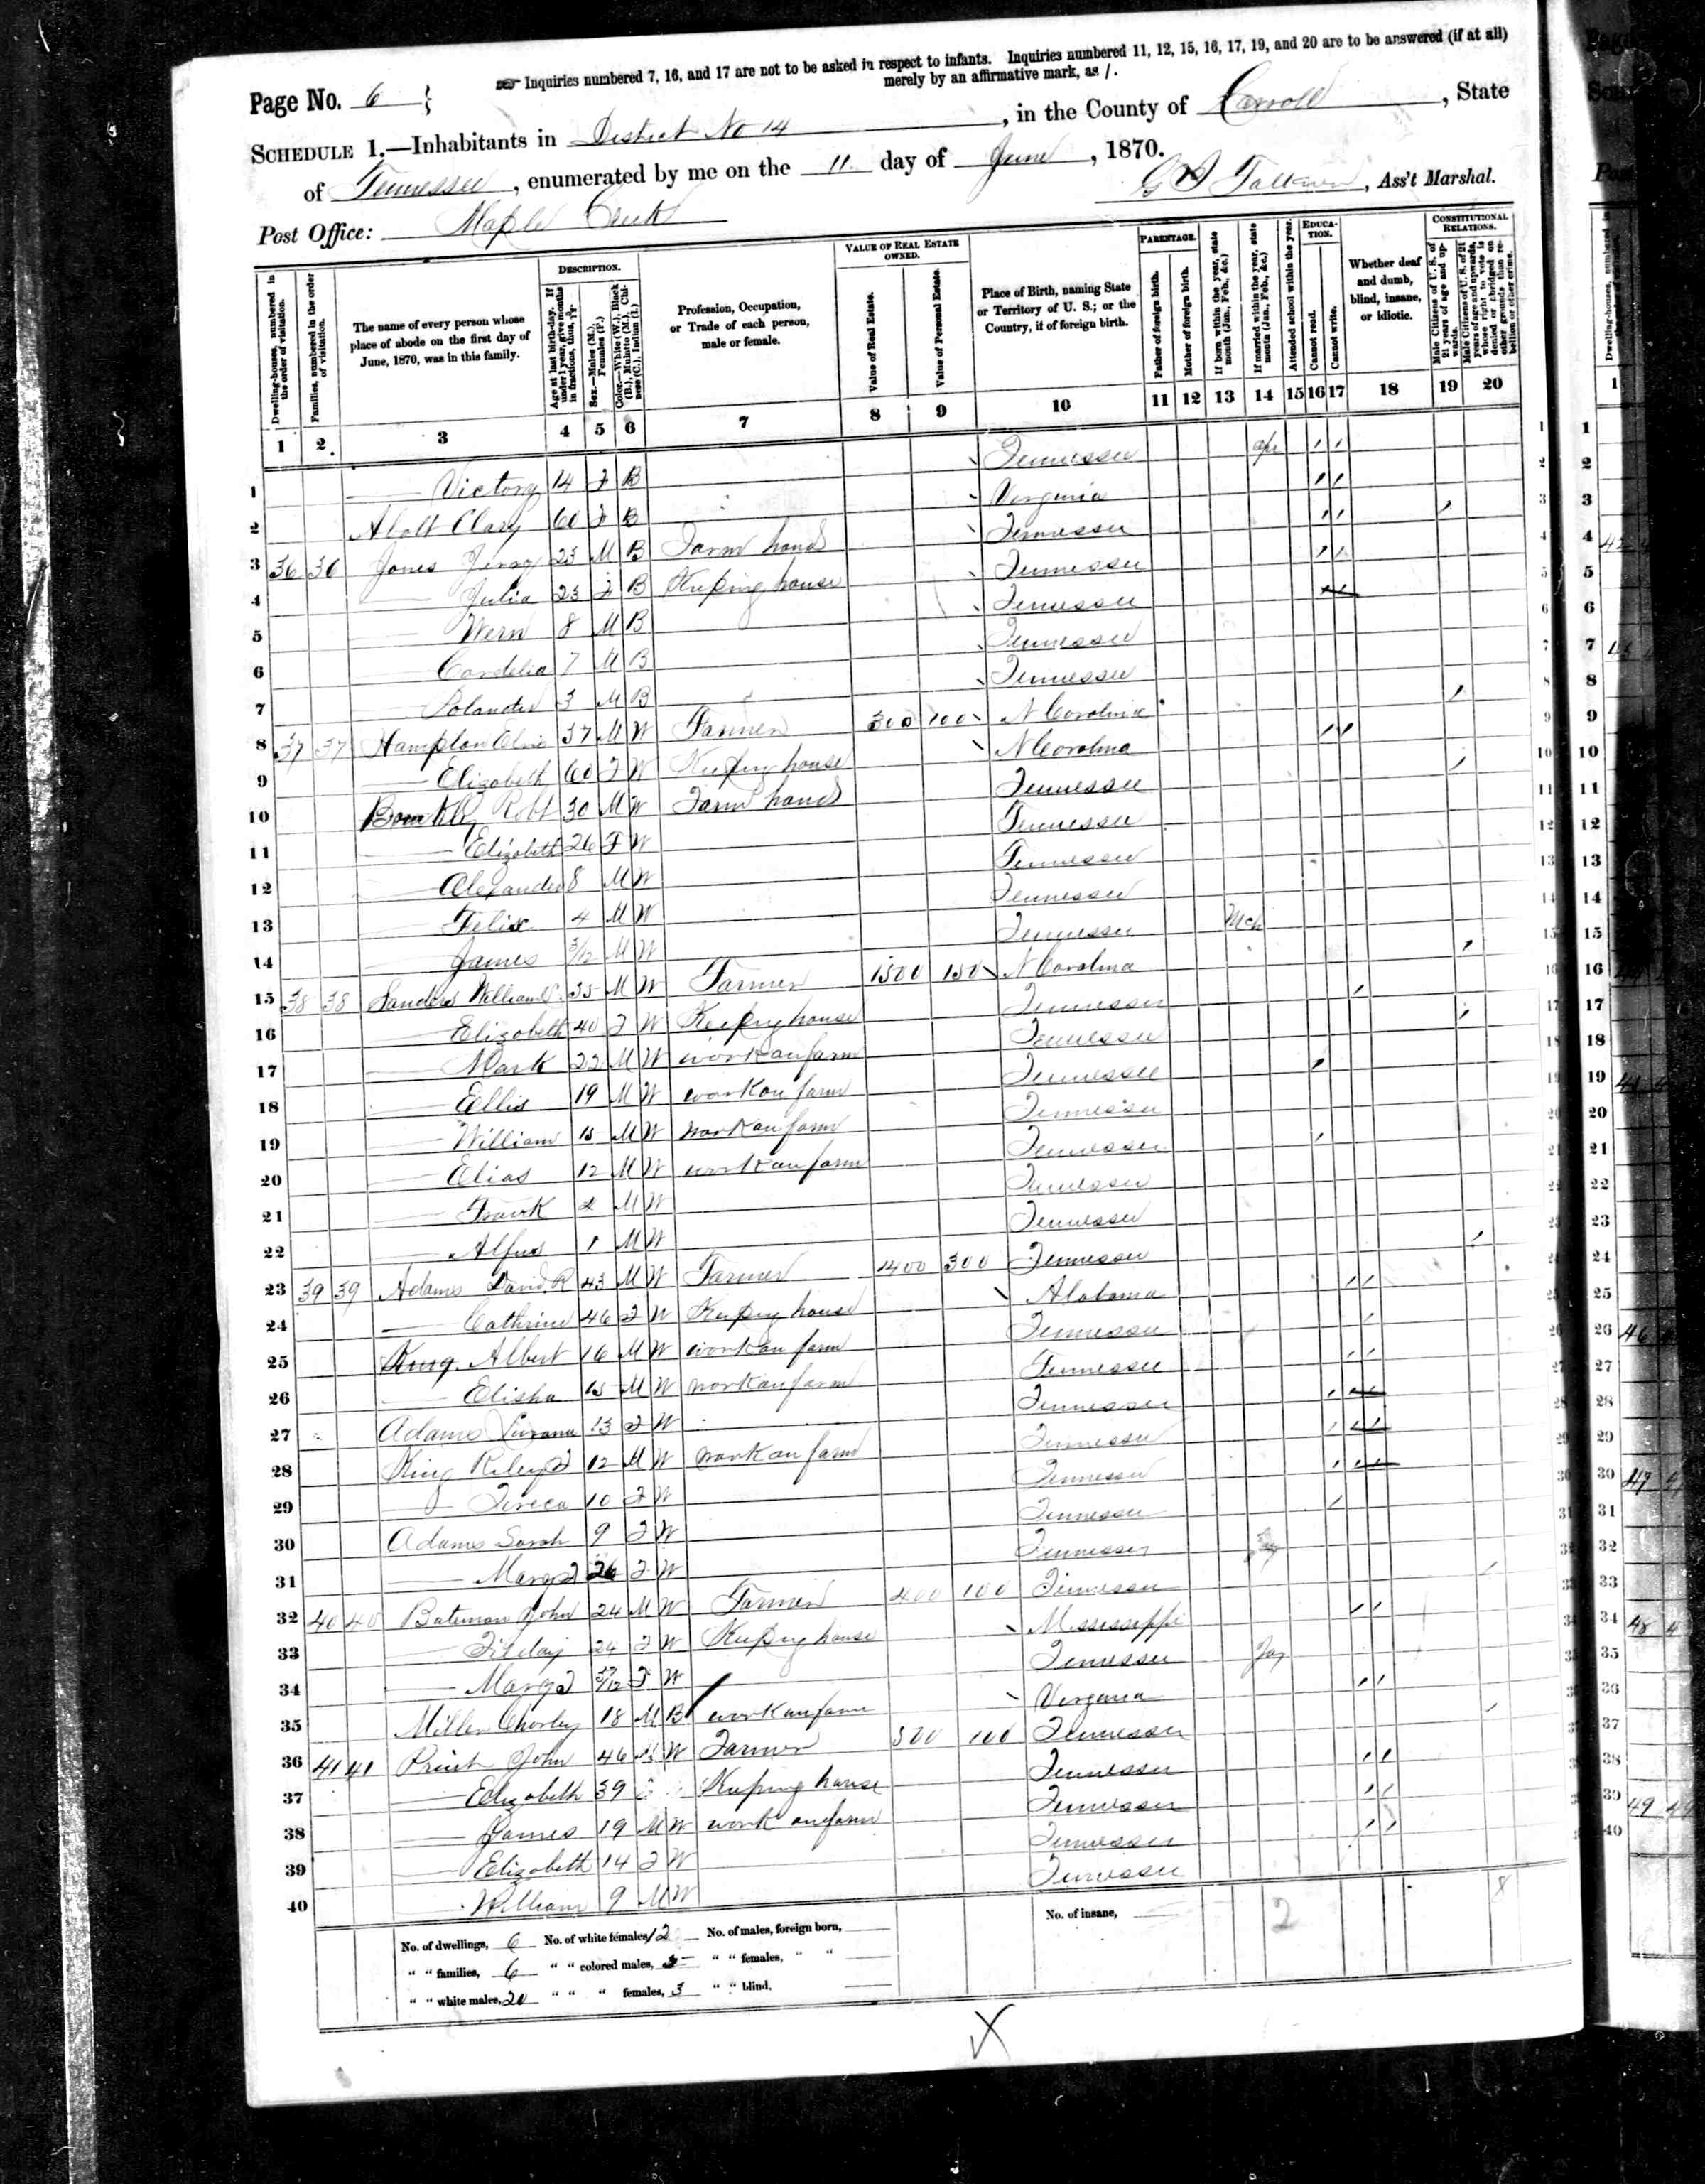 Inquiries numbered 7, 16, and 17 are not to be asked in respect to infants. Inquiries numbered 11, 12, 15, 16, 17, 19, and 20 are to be answered (if at all)
merely by an affirmative mark, as /.
Page No. 6
SCHEDULE 1.—Inhabitants in District No 14, in the County of Carroll, State
of Tennessee, enumerated by me on the 11 day of June, 1870.
Post Office: Maple Creek
Ass't Marshal.
Dwelling-houses, numbered in the order of visitation.
Families, numbered in the order of visitation.
The name of every person whose place of abode on the first day of June, 1870, was in this family.
DESCRIPTION.
Age at last birth-day. If under 1 year, give months in fractions, thus, 3/12
Sex.—Males (M.), Females (F.)
Color.—White (W.), Black (B.), Mulatto (M.), Chinese (C.), Indian (I.)
Profession, Occupation, or Trade of each person, male or female.
VALUE OF REAL ESTATE OWNED.
Value of Real Estate.
Value of Personal Estate.
Place of Birth, naming State or Territory of U. S.; or the Country, if of foreign birth.
PARENTAGE.
Father of foreign birth.
Mother of foreign birth.
If born within the year, state month (Jan., Feb., &c.)
If married within the year, state month (Jan., Feb., &c.)
Attended school within the year.
EDUCATION.
Cannot read.
Cannot write.
Whether deaf and dumb, blind, insane, or idiotic.
CONSTITUTIONAL RELATIONS.
Male Citizens of U. S. of 21 years of age and upwards.
Male Citizens of U. S. of 21 years of age and upwards, whose right to vote is denied or abridged on other grounds than rebellion or other crime.
1 2 3 4 5 6 7 8 9 10 11 12 13 14 15 16 17 18 19 20
1 Victory 14 F B Tennessee Apr
2 Abott Clary 60 F B Virginia
3 36 36 Jones Jerry 23 M B Farm hand Tennessee
4 Julia 23 F B Keeping house Tennessee
5 8 M B Tennessee
6 Cordelia 7 M B Tennessee
7 3 M B Tennessee
8 37 37 Hampton 37 M W Farmer 300 100 N Carolina
9 Elizabeth 60 F W Keeping house N Carolina
10 Robt 30 M W Farm hand Tennessee
11 Elizabeth 26 F W Tennessee
12 Alexander 8 M W Tennessee
13 Felix 4 M W Tennessee
14 James 3/12 M W Tennessee Mch
15 38 38 Sanders William 35 M W Farmer N Carolina
16 Elizabeth 40 F W Keeping house Tennessee
17 Mark 22 M W work on farm Tennessee
18 Ellis 19 M W work on farm Tennessee
19 William 15 M W work on farm Tennessee
20 Elias 12 M W work on farm Tennessee
21 Frank M W Tennessee
22 1 M W Tennessee
23 39 39 Adams David R 43 M W Farmer 1400 300 Tennessee
24 Cathrine 46 F W Keeping house Alabama
25 King Albert 16 M W work on farm Tennessee
26 Elisha 15 M W work on farm Tennessee
27 Adams 13 F W Tennessee
28 King Riley 12 M W work on farm Tennessee
29 10 F W Tennessee
30 Adams Sarah 9 F W Tennessee
31 F W Tennessee
32 40 40 Bateman John 24 M W Farmer 400 100 Tennessee
33 24 F W Keeping house Mississippi
34 F W Tennessee
35 Miller Charley 18 M B work on farm Virginia
36 41 41 John 46 M W Farmer 100 Tennessee
37 Elizabeth 39 Keeping house Tennessee
38 James 19 M W work on farm Tennessee
39 Elizabeth 14 F W Tennessee
40 William 9 M W Tennessee
No. of dwellings, 6 No. of white females, 12 No. of males, foreign born,
" " families, 6 " " colored males, 5 " " females, " "
" " white males, 20 " " " females, 3 " " blind,
No. of insane,
2
X